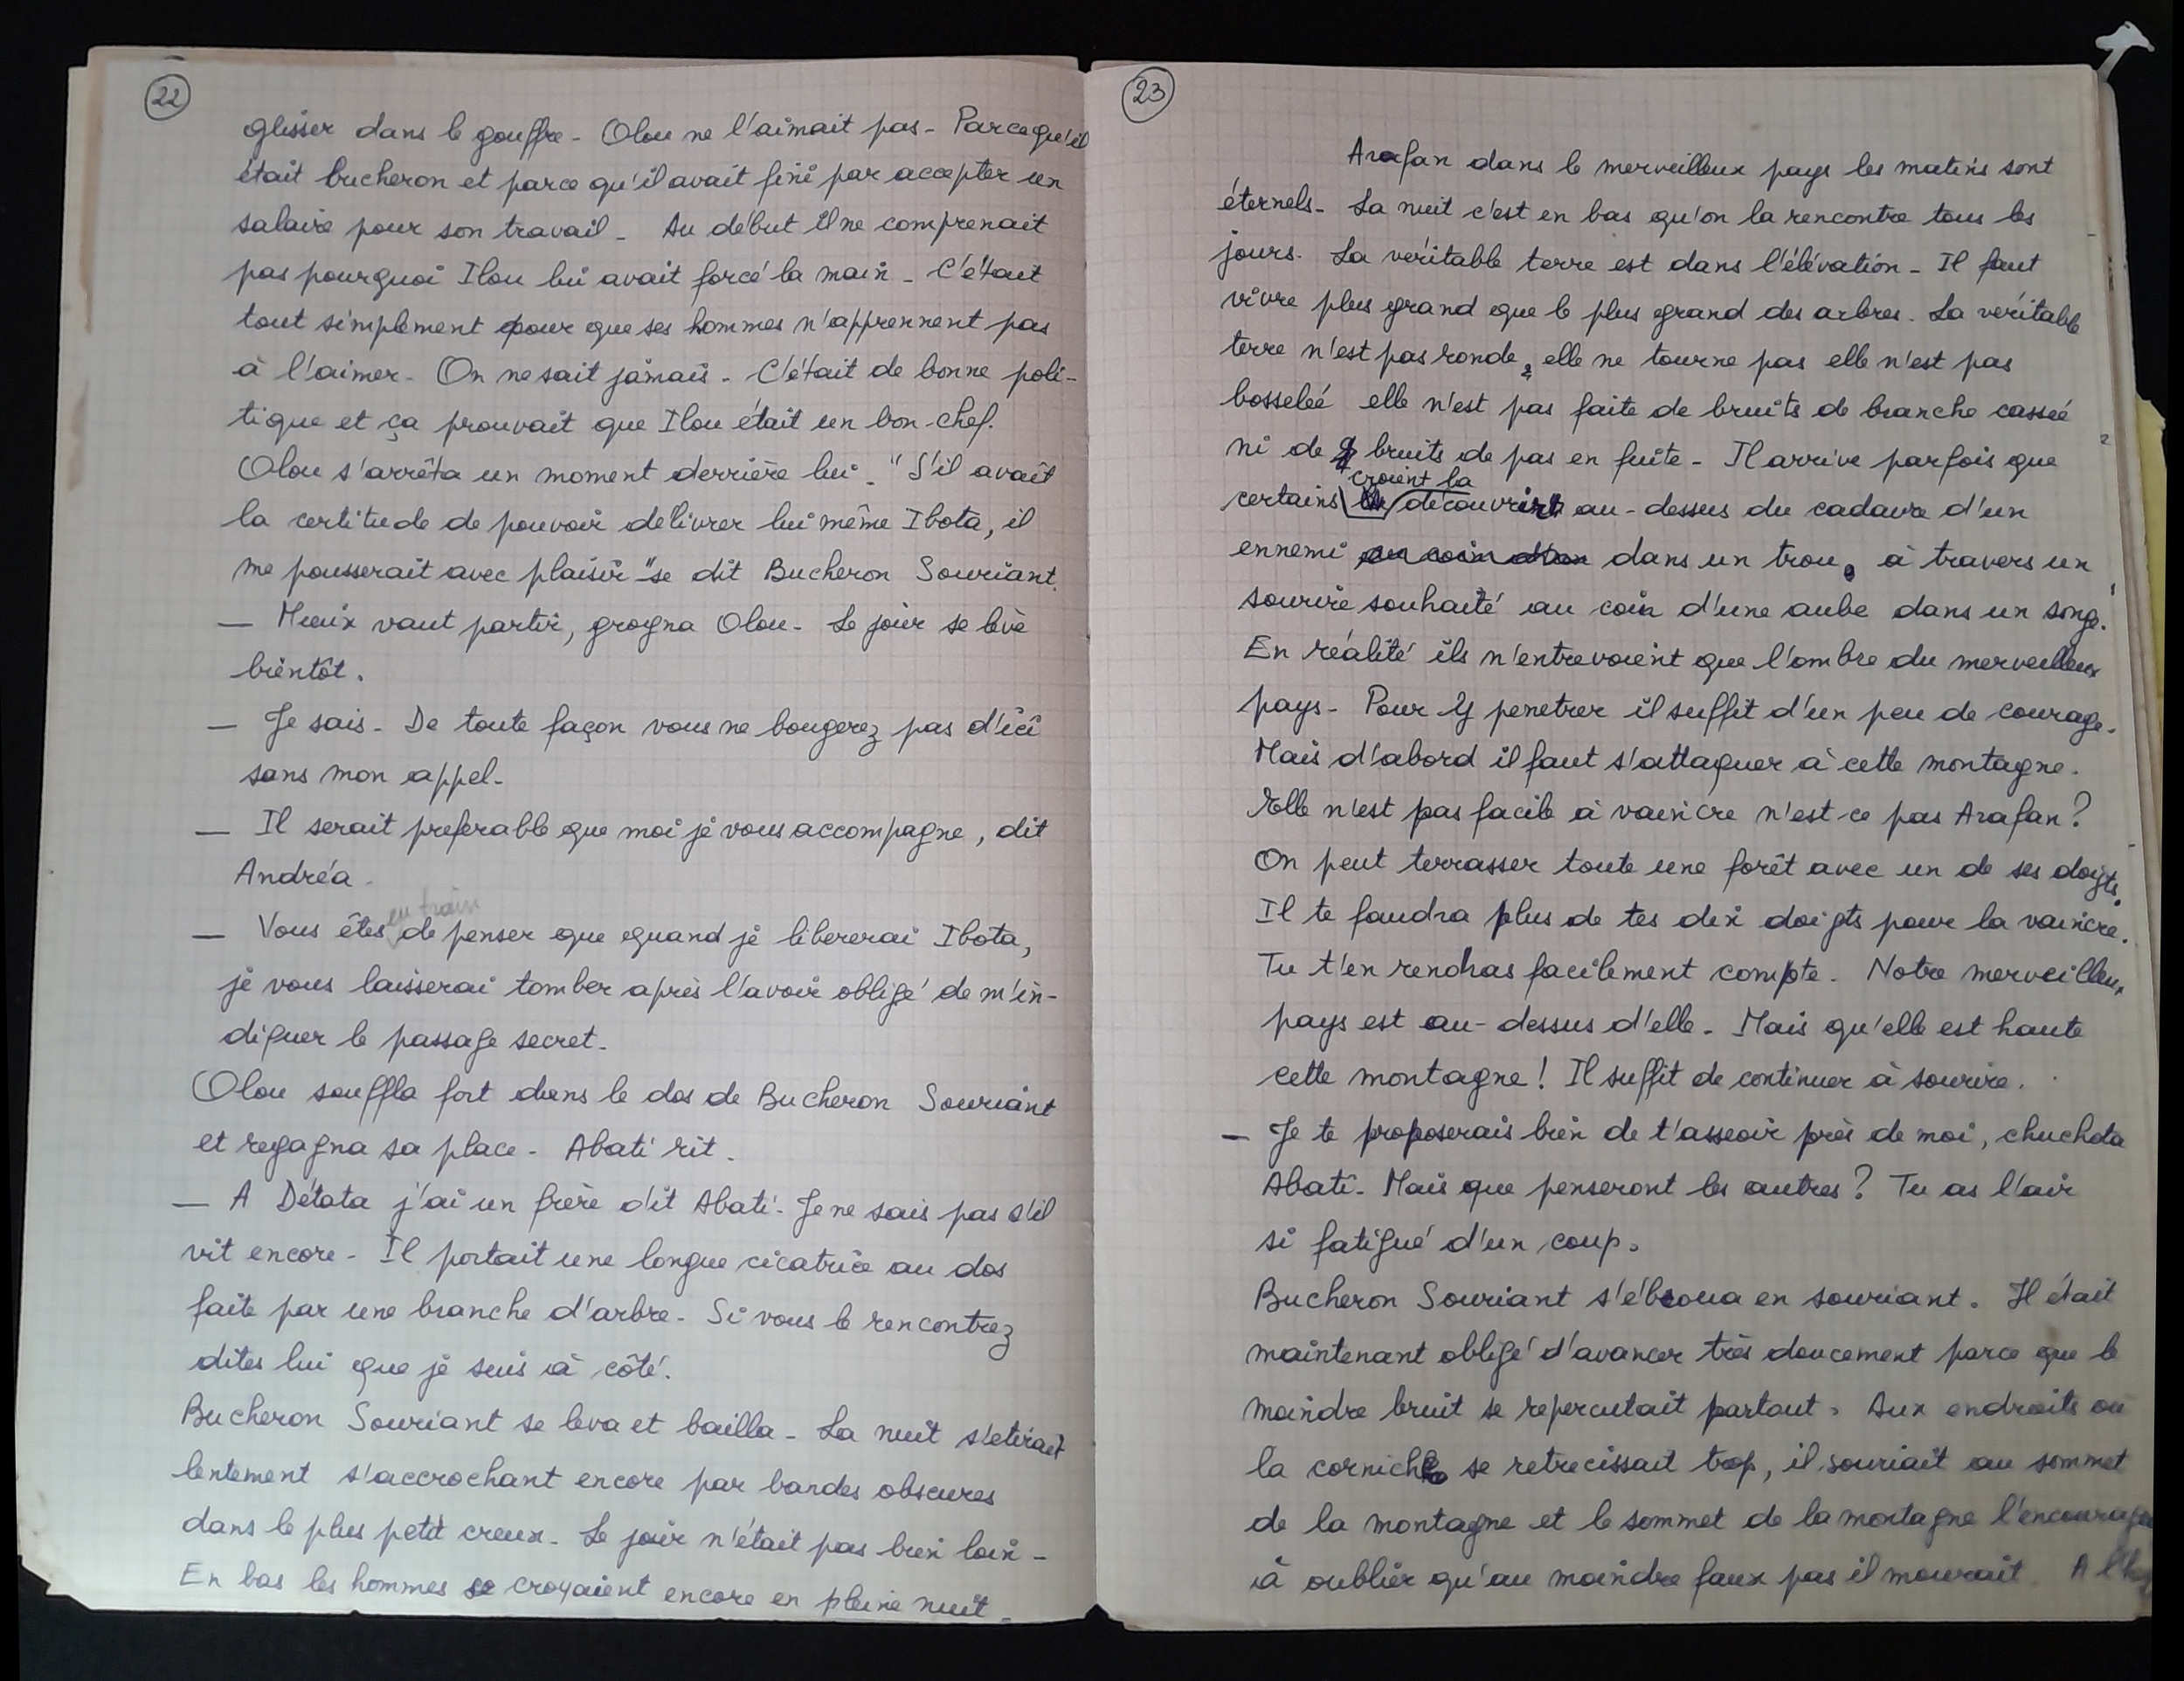 22
glisser dans le gouffre - Olou ne l'aimait pas - Parcequ'il
était bucheron et parce qu'il avait fini par accepter un
salaire pour son travail - Au début il ne comprenait
pas pourquoi Ilou lui avait forcé la main - C'était
tout simplement pour que ses hommes n'apprennent pas
à l'aimer - On ne sait jamais - C'était de bonne poli-
tique et ça prouvait que Ilou était un bon chef.
Olou s'arrêta un moment derrière lui - "S'il avait
la certitude de pouvoir delivrer lui même Ibota, il
me pousserait avec plaisir" se dit Bucheron Souriant.
— Mieux vaut partir, grogna Olou - Le jour se lève
bientôt.
— Je sais - De toute façon vous ne bougerez pas d'ici
sans mon appel -
— Il serait preferable que moi je vous accompagne, dit
Andréa -
— Vous êtes en train de penser que quand je libererai Ibota,
je vous laisserai tomber après l'avoir obligé de m'in-
diquer le passage secret -
Olou souffla fort dans le dos de Bucheron Souriant
et regagna sa place - Abati rit -
— A Détata j'ai un frère dit Abati - Je ne sais pas s'il
vit encore - Il portait une longue cicatrice au dos
faite par une branche d'arbre - Si vous le rencontrez
dites lui que je suis à côté.
Bucheron Souriant se leva et bailla - La nuit s'etirait
lentement s'accrochant encore par bandes obscures
dans le plus petit creux - Le jour n'était pas bien loin -
En bas les hommes se croyaient encore en pleine nuit -
23
Arafan dans le merveilleux pays les matins sont
éternels - La nuit c'est en bas qu'on la rencontre tous les
jours - La veritable terre est dans l'élévation - Il faut
vivre plus grand que le plus grand des arbres - La veritable
terre n'est pas ronde, elle ne tourne pas elle n'est pas
bosseleé elle n'est pas faite de bruits de branche casseé
ni de bruits de pas en fuite - Il arrive parfois que
certains croient la découvrir au-dessus du cadavre d'un
ennemi au coin d'un dans un trou, à travers un
sourire souhaité au coin d'une aube dans un songe.
En réalité ils n'entrevoient que l'ombre du merveilleux
pays - Pour y penetrer il suffit d'un peu de courage -
Mais d'abord il faut s'attaquer à cette montagne.
Elle n'est pas facile à vaincre n'est-ce pas Arafan?
On peut terrasser toute une forêt avec un de ses doigts.
Il te faudra plus de tes dix doigts pour la vaincre.
Tu t'en rendras facilement compte - Notre merveilleux
pays est au-dessus d'elle - Mais qu'elle est haute
cette montagne! Il suffit de continuer à sourire.
— Je te proposerais bien de t'asseoir près de moi, chuchota
Abati - Mais que penseront les autres? Tu as l'air
si fatigué d'un coup.
Bucheron Souriant s'ébroua en souriant. Il était
maintenant obligé d'avancer très doucement parce que le
moindre bruit se repercutait partout. Aux endroits où
la corniche se retrecissait trop, il souriait au sommet
de la montagne et le sommet de la montagne
à oublier qu'au moindre faux pas il mourait. A